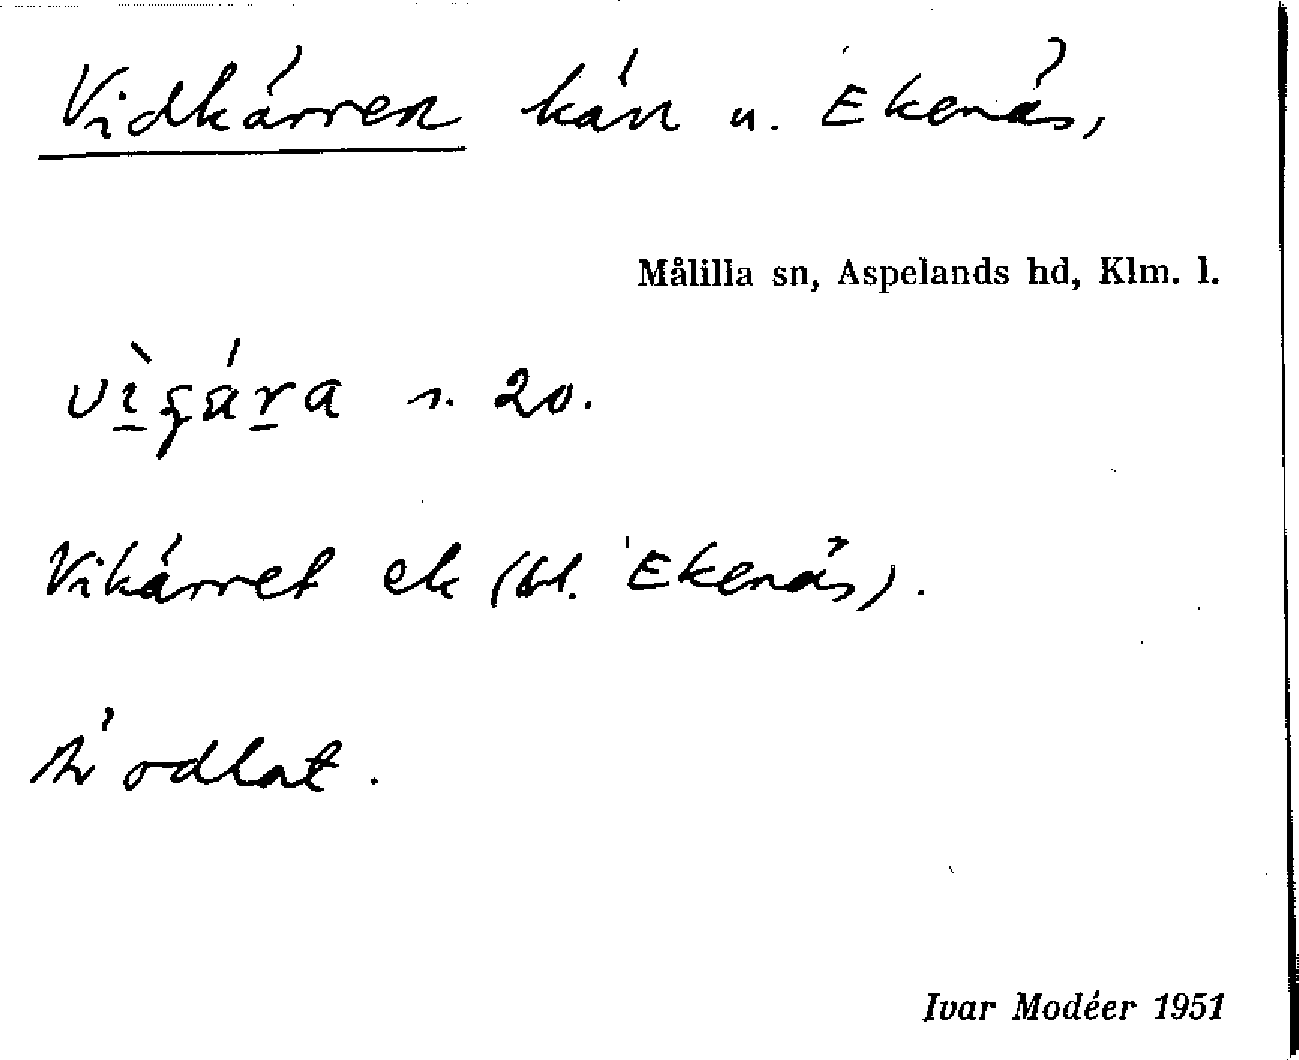 Vidkärren kärr u. Ekenäs,
Målilla sn, Aspelands hd, Klm. l.
s. 20.
Vikärret ek (bl. Ekenäs).
Är odlat.
Ivar Modéer 1951